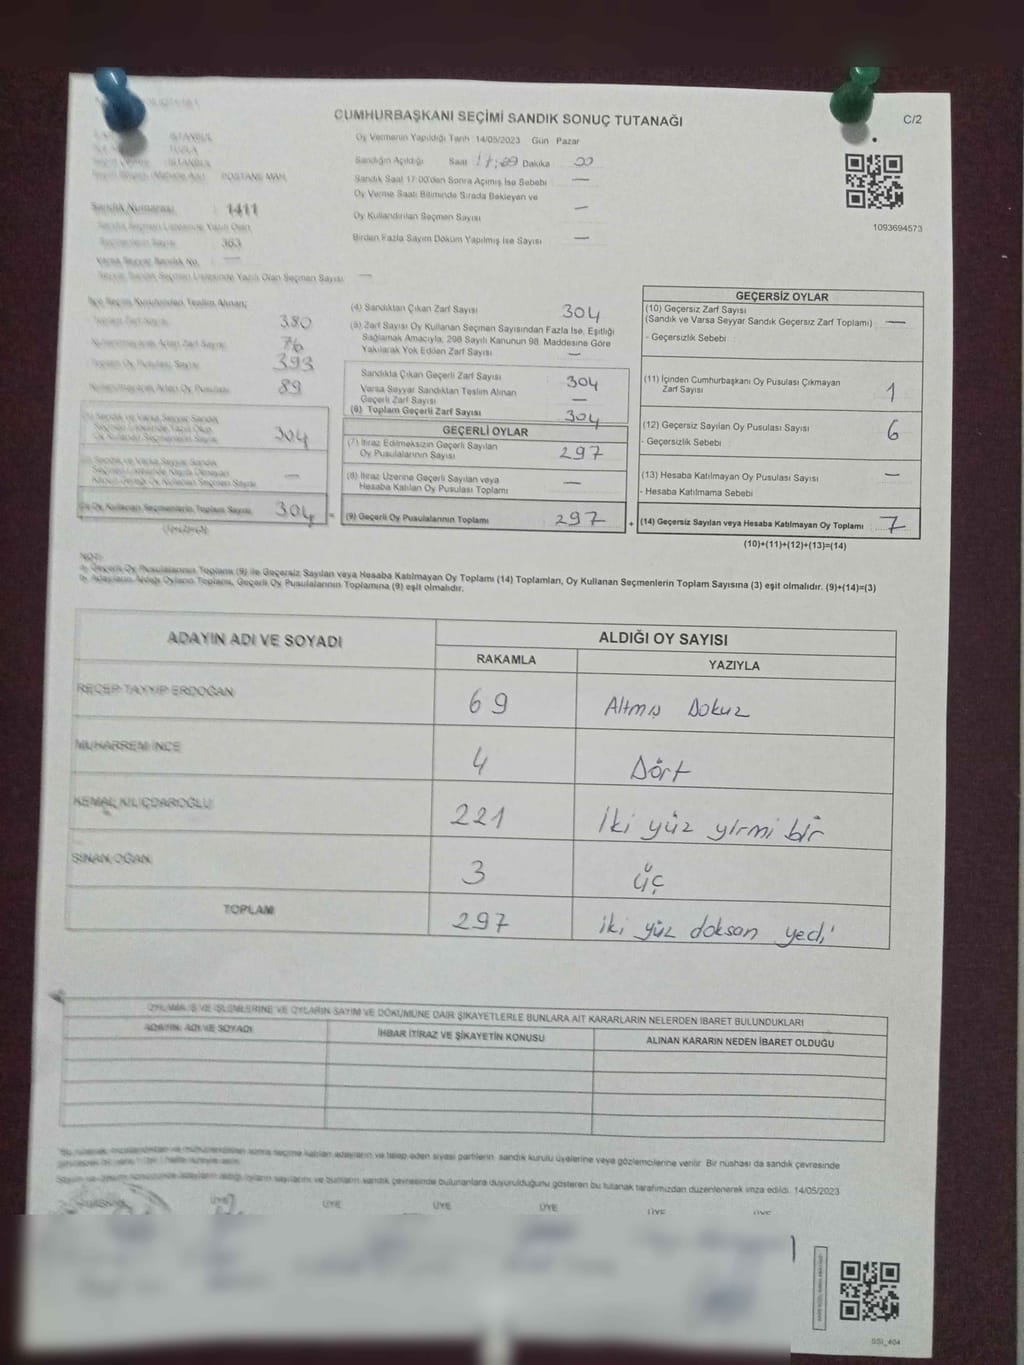 CUMHURBAŞKANI SEÇİMİ SANDIK SONUÇ TUTANAĞI
C/2
Oy Vermenin Yapıldığı Tarih 14/05/2023 Gün Pazar
İSTANBUL
TUZLA
İSTANBUL
POSTANE MAH.
Sandığın Açıldığı Saat Dakika 00
Sandık Saat 17:00'den Sonra Açılmış İse Sebebi —
Oy Verme Saati Bitiminde Sırada Bekleyen ve
Oy Kullandırılan Seçmen Sayısı —
Birden Fazla Sayım Döküm Yapılmış İse Sayısı —
1093694573
Sandık Numarası : 1411
Sandık Seçmen Listesinde Yazılı Olan
Seçmenlerin Sayısı : 363
Varsa Seyyar Sandık No. —
Seyyar Sandık Seçmen Listesinde Yazılı Olan Seçmen Sayısı —
İlçe Seçim Kurulundan Teslim Alınan;
Toplam Zarf Sayısı 380
Kullanılmayarak Artan Zarf Sayısı 76
Toplam Oy Pusulası Sayısı 393
Kullanılmayarak Artan Oy Pusulası 89
304
—
(3) Oy Kullanan Seçmenlerin Toplam Sayısı 304
(1)+(2)=(3)
(4) Sandıktan Çıkan Zarf Sayısı 304
(5) Zarf Sayısı Oy Kullanan Seçmen Sayısından Fazla İse, Eşitliği
Sağlamak Amacıyla, 298 Sayılı Kanunun 98. Maddesine Göre
Yakılarak Yok Edilen Zarf Sayısı —
Sandıkta Çıkan Geçerli Zarf Sayısı 304
Varsa Seyyar Sandıktan Teslim Alınan
Geçerli Zarf Sayısı —
(6) Toplam Geçerli Zarf Sayısı 304
GEÇERLİ OYLAR
(7) İtiraz Edilmeksizin Geçerli Sayılan
Oy Pusulalarının Sayısı 297
(8) İtiraz Üzerine Geçerli Sayılan veya
Hesaba Katılan Oy Pusulası Toplamı —
= (9) Geçerli Oy Pusulalarının Toplamı 297
GEÇERSİZ OYLAR
(10) Geçersiz Zarf Sayısı
(Sandık ve Varsa Seyyar Sandık Geçersiz Zarf Toplamı) —
- Geçersizlik Sebebi
(11) İçinden Cumhurbaşkanı Oy Pusulası Çıkmayan
Zarf Sayısı 1
(12) Geçersiz Sayılan Oy Pusulası Sayısı 6
- Geçersizlik Sebebi
(13) Hesaba Katılmayan Oy Pusulası Sayısı —
- Hesaba Katılmama Sebebi
+ (14) Geçersiz Sayılan veya Hesaba Katılmayan Oy Toplamı 7
(10)+(11)+(12)+(13)=(14)
NOT:
a) Geçerli Oy Pusulalarının Toplamı (9) ile Geçersiz Sayılan veya Hesaba Katılmayan Oy Toplamı (14) Toplamları, Oy Kullanan Seçmenlerin Toplam Sayısına (3) eşit olmalıdır. (9)+(14)=(3)
b) Adayların Aldığı Oyların Toplamı, Geçerli Oy Pusulalarının Toplamına (9) eşit olmalıdır.
ADAYIN ADI VE SOYADI ALDIĞI OY SAYISI
RAKAMLA YAZIYLA
RECEP TAYYİP ERDOĞAN 69 Altmış Dokuz
MUHARREM İNCE 4 Dört
KEMAL KILIÇDAROĞLU 221 İki yüz yirmi bir
SİNAN OĞAN 3 üç
TOPLAM 297 iki yüz doksan yedi
OYLAMA İŞ VE İŞLEMLERİNE VE OYLARIN SAYIM VE DÖKÜMÜNE DAİR ŞİKAYETLERLE BUNLARA AİT KARARLARIN NELERDEN İBARET BULUNDUKLARI
ADAYIN ADI VE SOYADI İHBAR İTİRAZ VE ŞİKAYETİN KONUSU ALINAN KARARIN NEDEN İBARET OLDUĞU
sonra seçime katılan adayların ve talep eden siyasi partilerin sandık kurulu üyelerine veya gözlemcilerine verilir. Bir nüshası da sandık çevresinde
adayların aldığı oyların sayılarını ve bunların sandık çevresinde bulunanlara duyurulduğunu gösteren bu tutanak tarafımızdan düzenlenerek imza edildi. 14/05/2023
ÜYE ÜYE ÜYE ÜYE ÜYE ÜYE
SSI_404